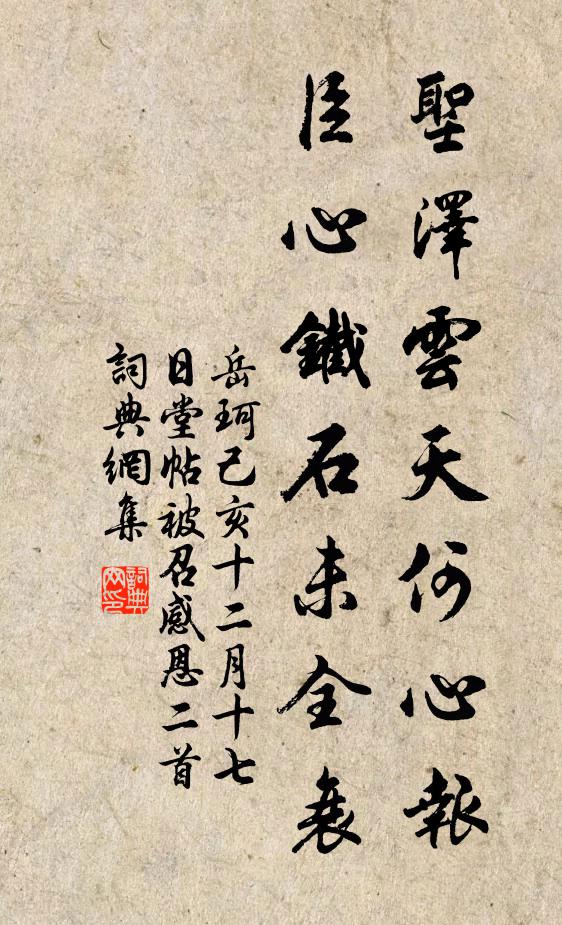 聖澤雲天何心報
臣心鐵石未全衰
岳珂己亥十二月十七
日堂帖被召感恩二首
詞典網集
詞典網印